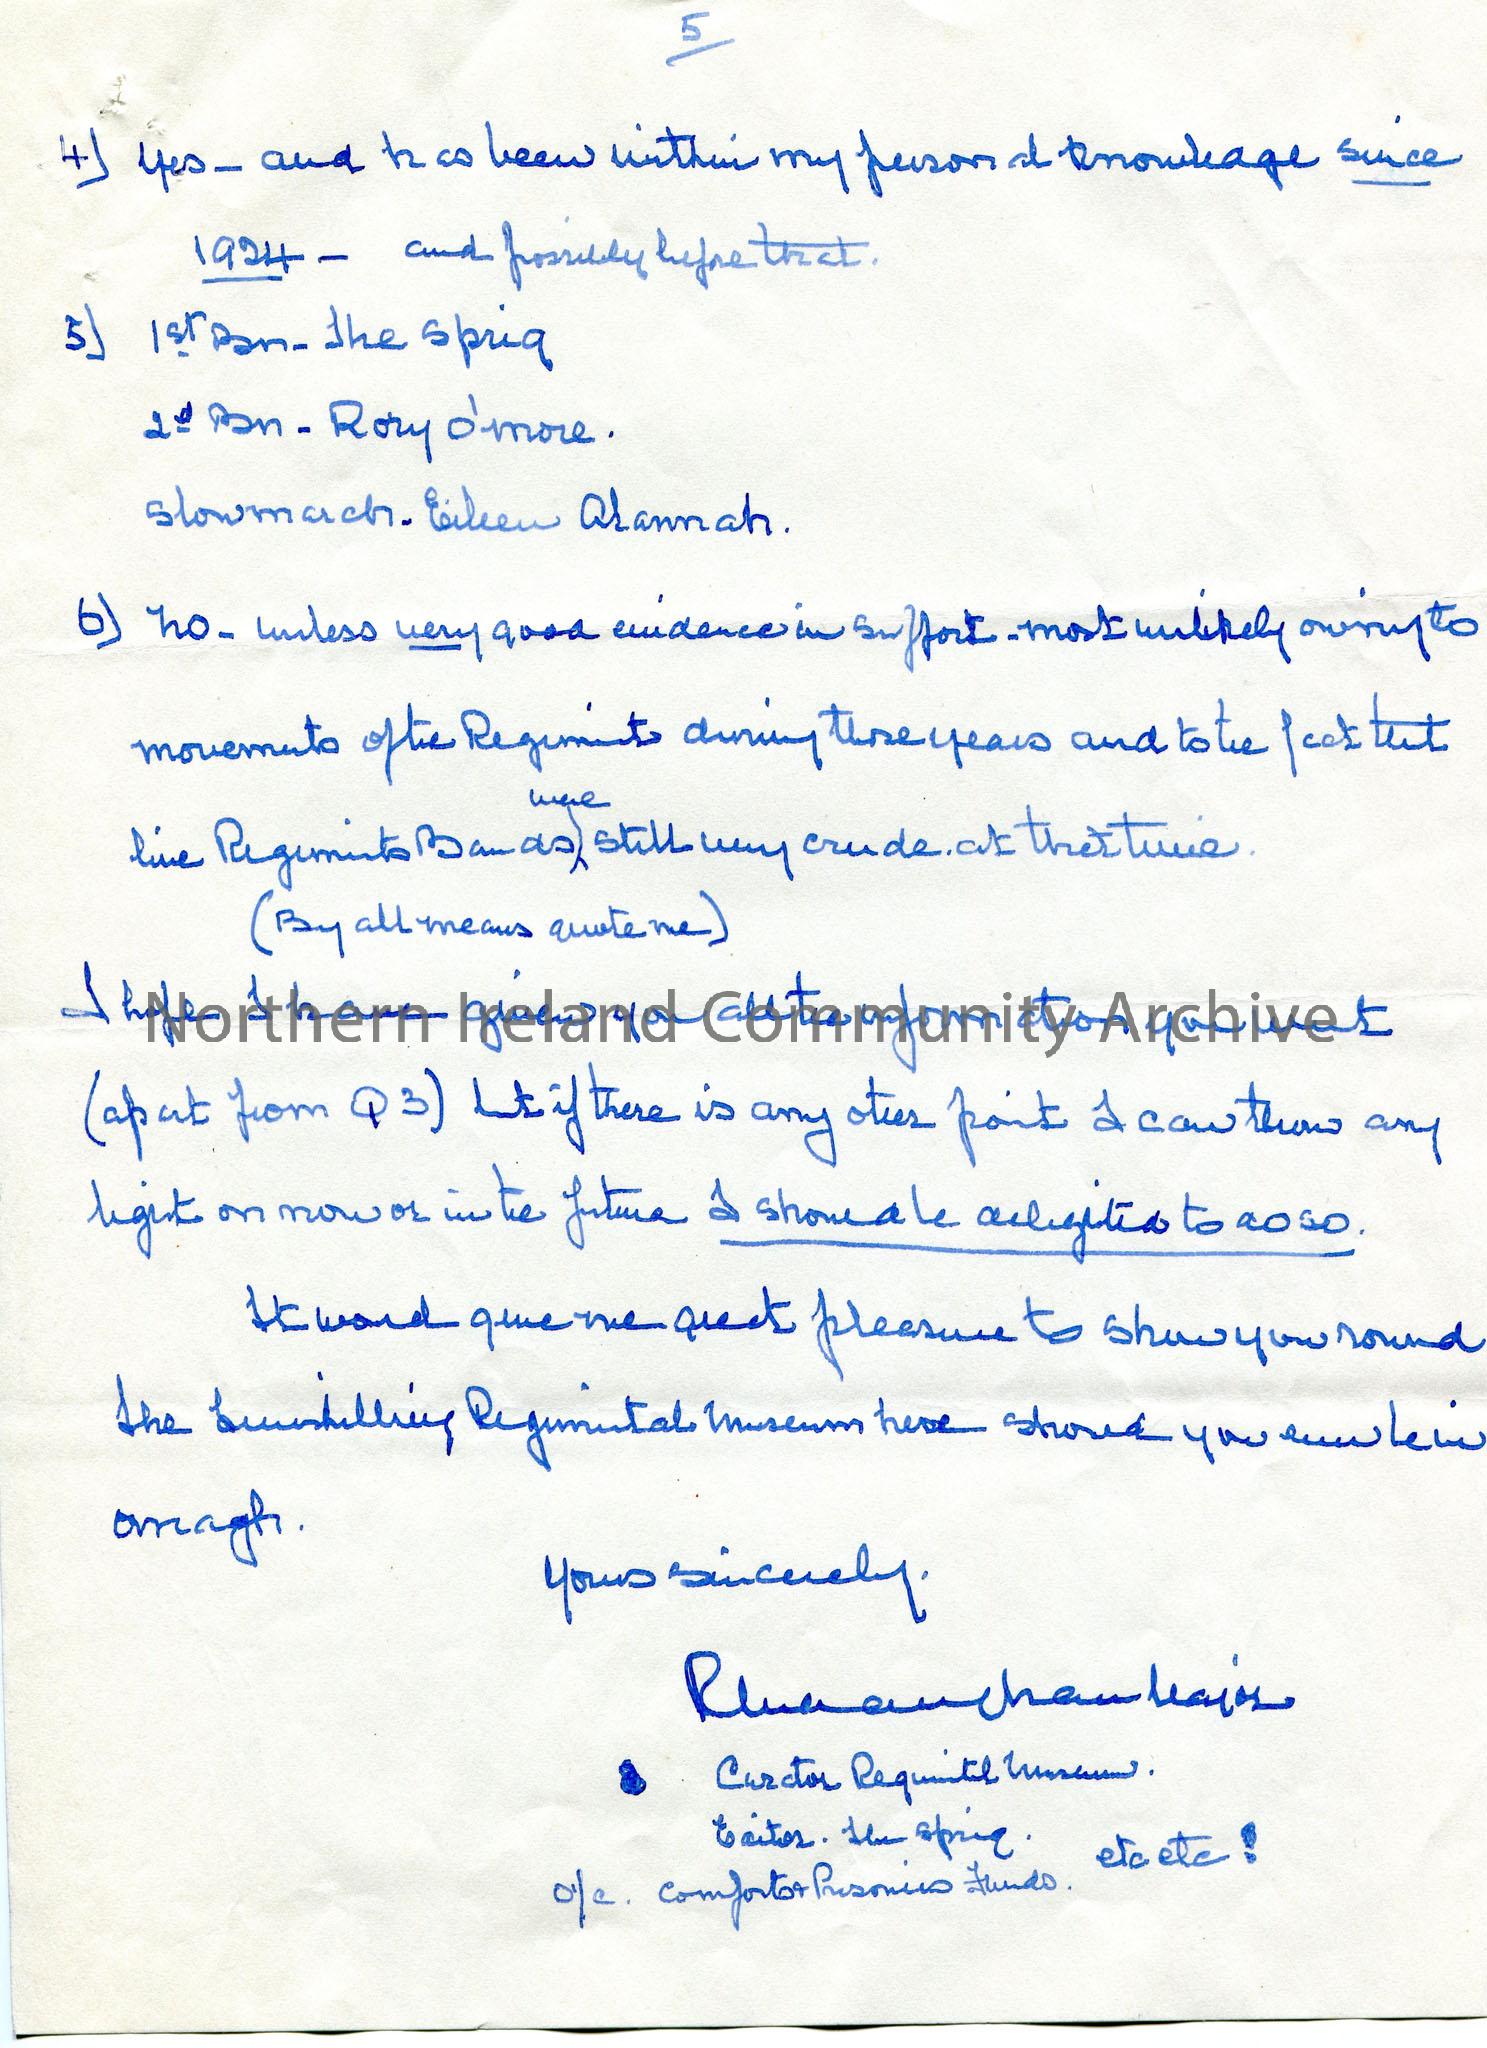 5
4) Yes - and has been within my personal knowledge since
1924 - and possibly before that.
5) 1st Bn - The Sprig
2d Bn - Rory O'More.
Slow march - Eileen Alannah.
6) No - unless very good evidence in support - most unlikely owing to
movements of the Regiments during those years and to the fact that
were
line Regiments Bands still very crude at that time.
(By all means quote me)
I hope I have given you all the information you want
Northern Ireland Community Archive
(apart from Q3) but if there is any other point I can throw any
light on now or in the future I should be delighted to do so.
It would give me great pleasure to show you round
the Inniskilling Regimental Museum here should you ever be in
Omagh.
Yours sincerely.
Major
Curator Regimental Museum.
Editor. The Sprig.
etc etc!
O/c. Comforts & Prisoners Funds.